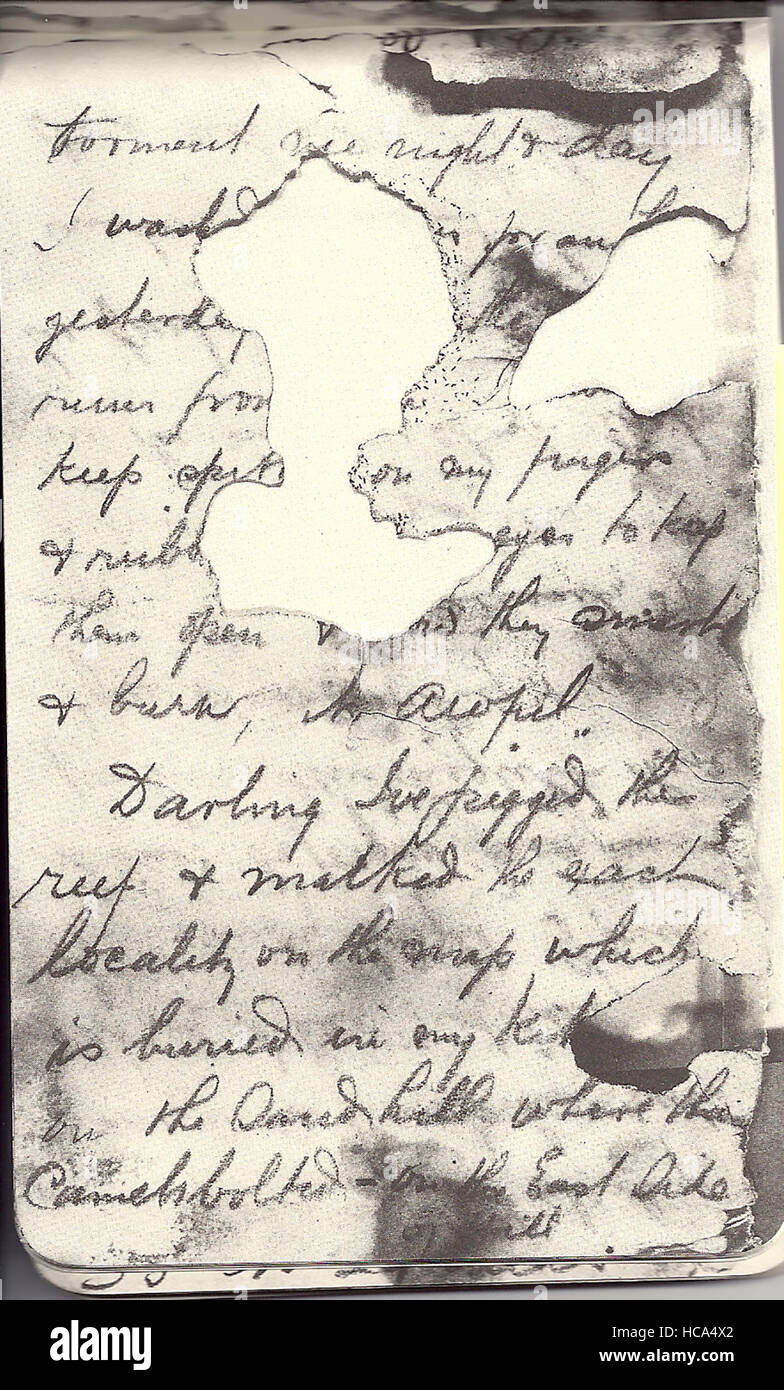 torment me night & day
I wa
yesterday the
river from
keep on my fingers
& rub eyes to keep
them open & they smart
& burn,
Darling I've pegged the
reef & marked the exact
locality on the map which
is buried in my kit
on the Sand hill where the
Camels bolted - on the East side
of hill
alamy
Image ID: HCA4X2
www.alamy.com